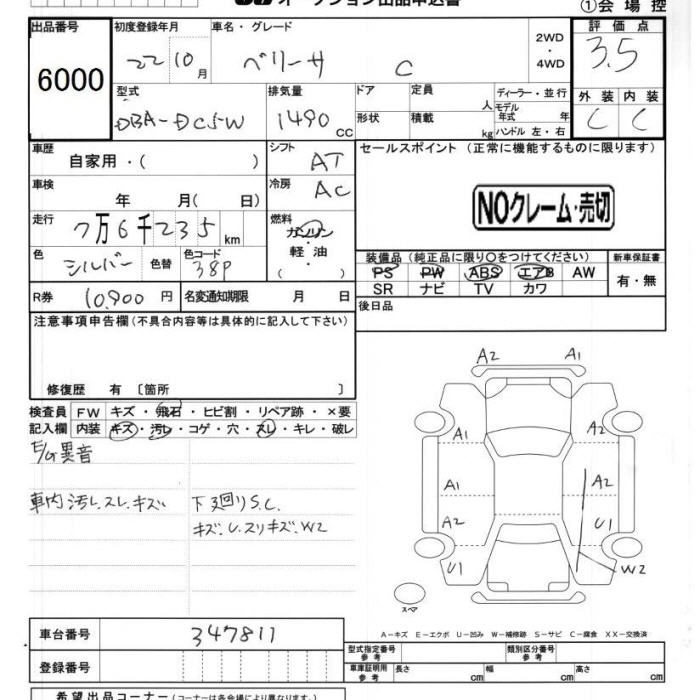 オークション出品申込書
①会場控
出品番号 初度登録年月 車名・グレード 評価点
6000 22 10月 ベリーサ C 2WD・4WD 3.5
型式 排気量 ドア 定員 ディーラー・並行 外装 内装
DBA-DC5W 1490 CC 形状 積載 人 kg モデル年式 年 ハンドル 左・右 C C
車歴 シフト セールスポイント (正常に機能するものに限ります)
自家用・( ) AT
車検 冷房
年 月( 日) AC NOクレーム・売切
走行 燃料
7万6千235km ガソリン
色 シルバー 色替 色コード 38P 軽油
・( )
装備品 (純正品に限り○をつけてください) 新車保証書
PS PW ABS エアB AW 有・無
SR ナビ TV カワ
R券 10,900円 名変通知期限 月 日 後日品
注意事項申告欄 (不具合内容等は具体的に記入して下さい)
修復歴 有 〔箇所 〕
検査員 FW キズ・飛石・ヒビ割・リペア跡・×要
記入欄 内装 キズ・汚レ・コゲ・穴・スレ・キレ・破レ
E/G異音
車内汚レ.スレ.キズ 下廻りS.C.
キズ.U.スリキズ.W2
A2 A1
A1 A2
A1 A2
A2 U1
U1 W2
スペア
A－キズ E－エクボ U－凹み W－補修跡 S－サビ C－腐食 XX－交換済
車台番号 347811
型式指定番号 参考 類別区分番号 参考
登録番号 車庫証明用 参考 長さ cm 幅 cm 高さ cm
希望出品コーナー (コーナーは各会場により異なります)